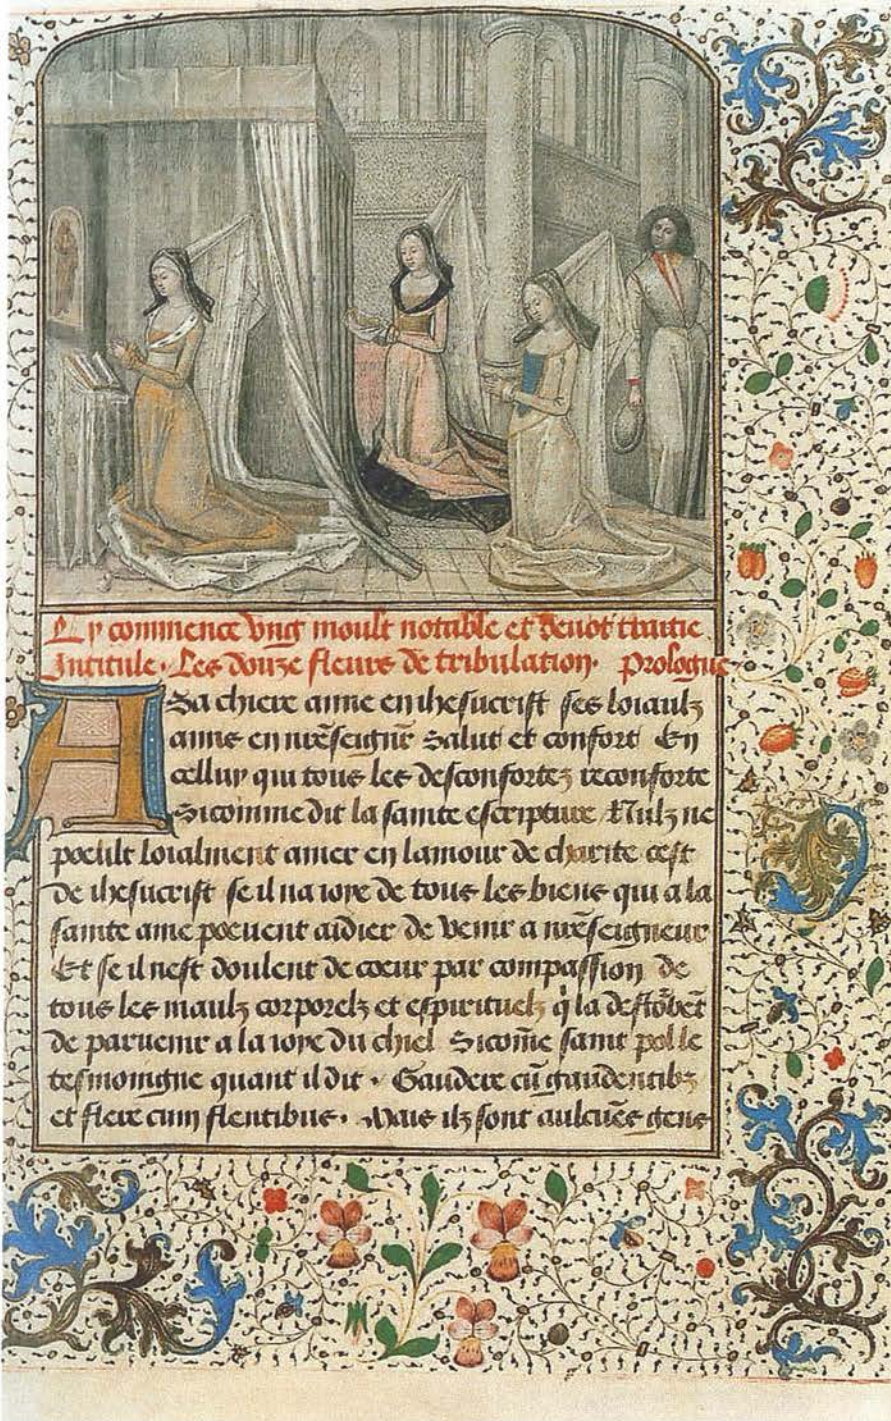 Cy commence vng moult notable et deuot traitie
Intitule · Les douze fleurs de tribulation · Prologue
A Sa chiere amie en ihesucrist ses loiaulz
amis en nr̄eseignr̄ Salut et confort En
celluy qui tous les desconfortez reconforte
Sicomme dit la sainte escripture Nulz ne
poeult loialment amer en lamour de charite cest
de ihesucrist se il na ioye de tous les biens qui a la
sainte ame poeuent aidier de venir a nr̄eseigneur
Et se il nest doulent de coeur par compassion de
tous les maulz corporelz et espirituelz q̇ la
de paruenir a la ioye du chiel Sicom̄e saint pol le
tesmoingne quant il dit · Gaudere cū gaudentibz
et flere cum flentibus · Mais ilz sont aulcūes gens